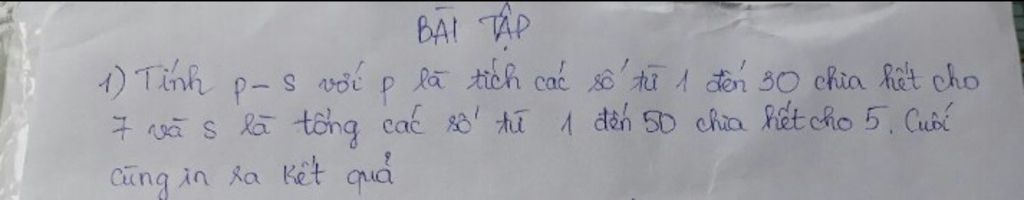 BÀI TẬP
1) Tính p - s với p là tích các số từ 1 đến 30 chia hết cho
7 và s là tổng các số từ 1 đến 50 chia hết cho 5. Cuối
cùng in ra kết quả